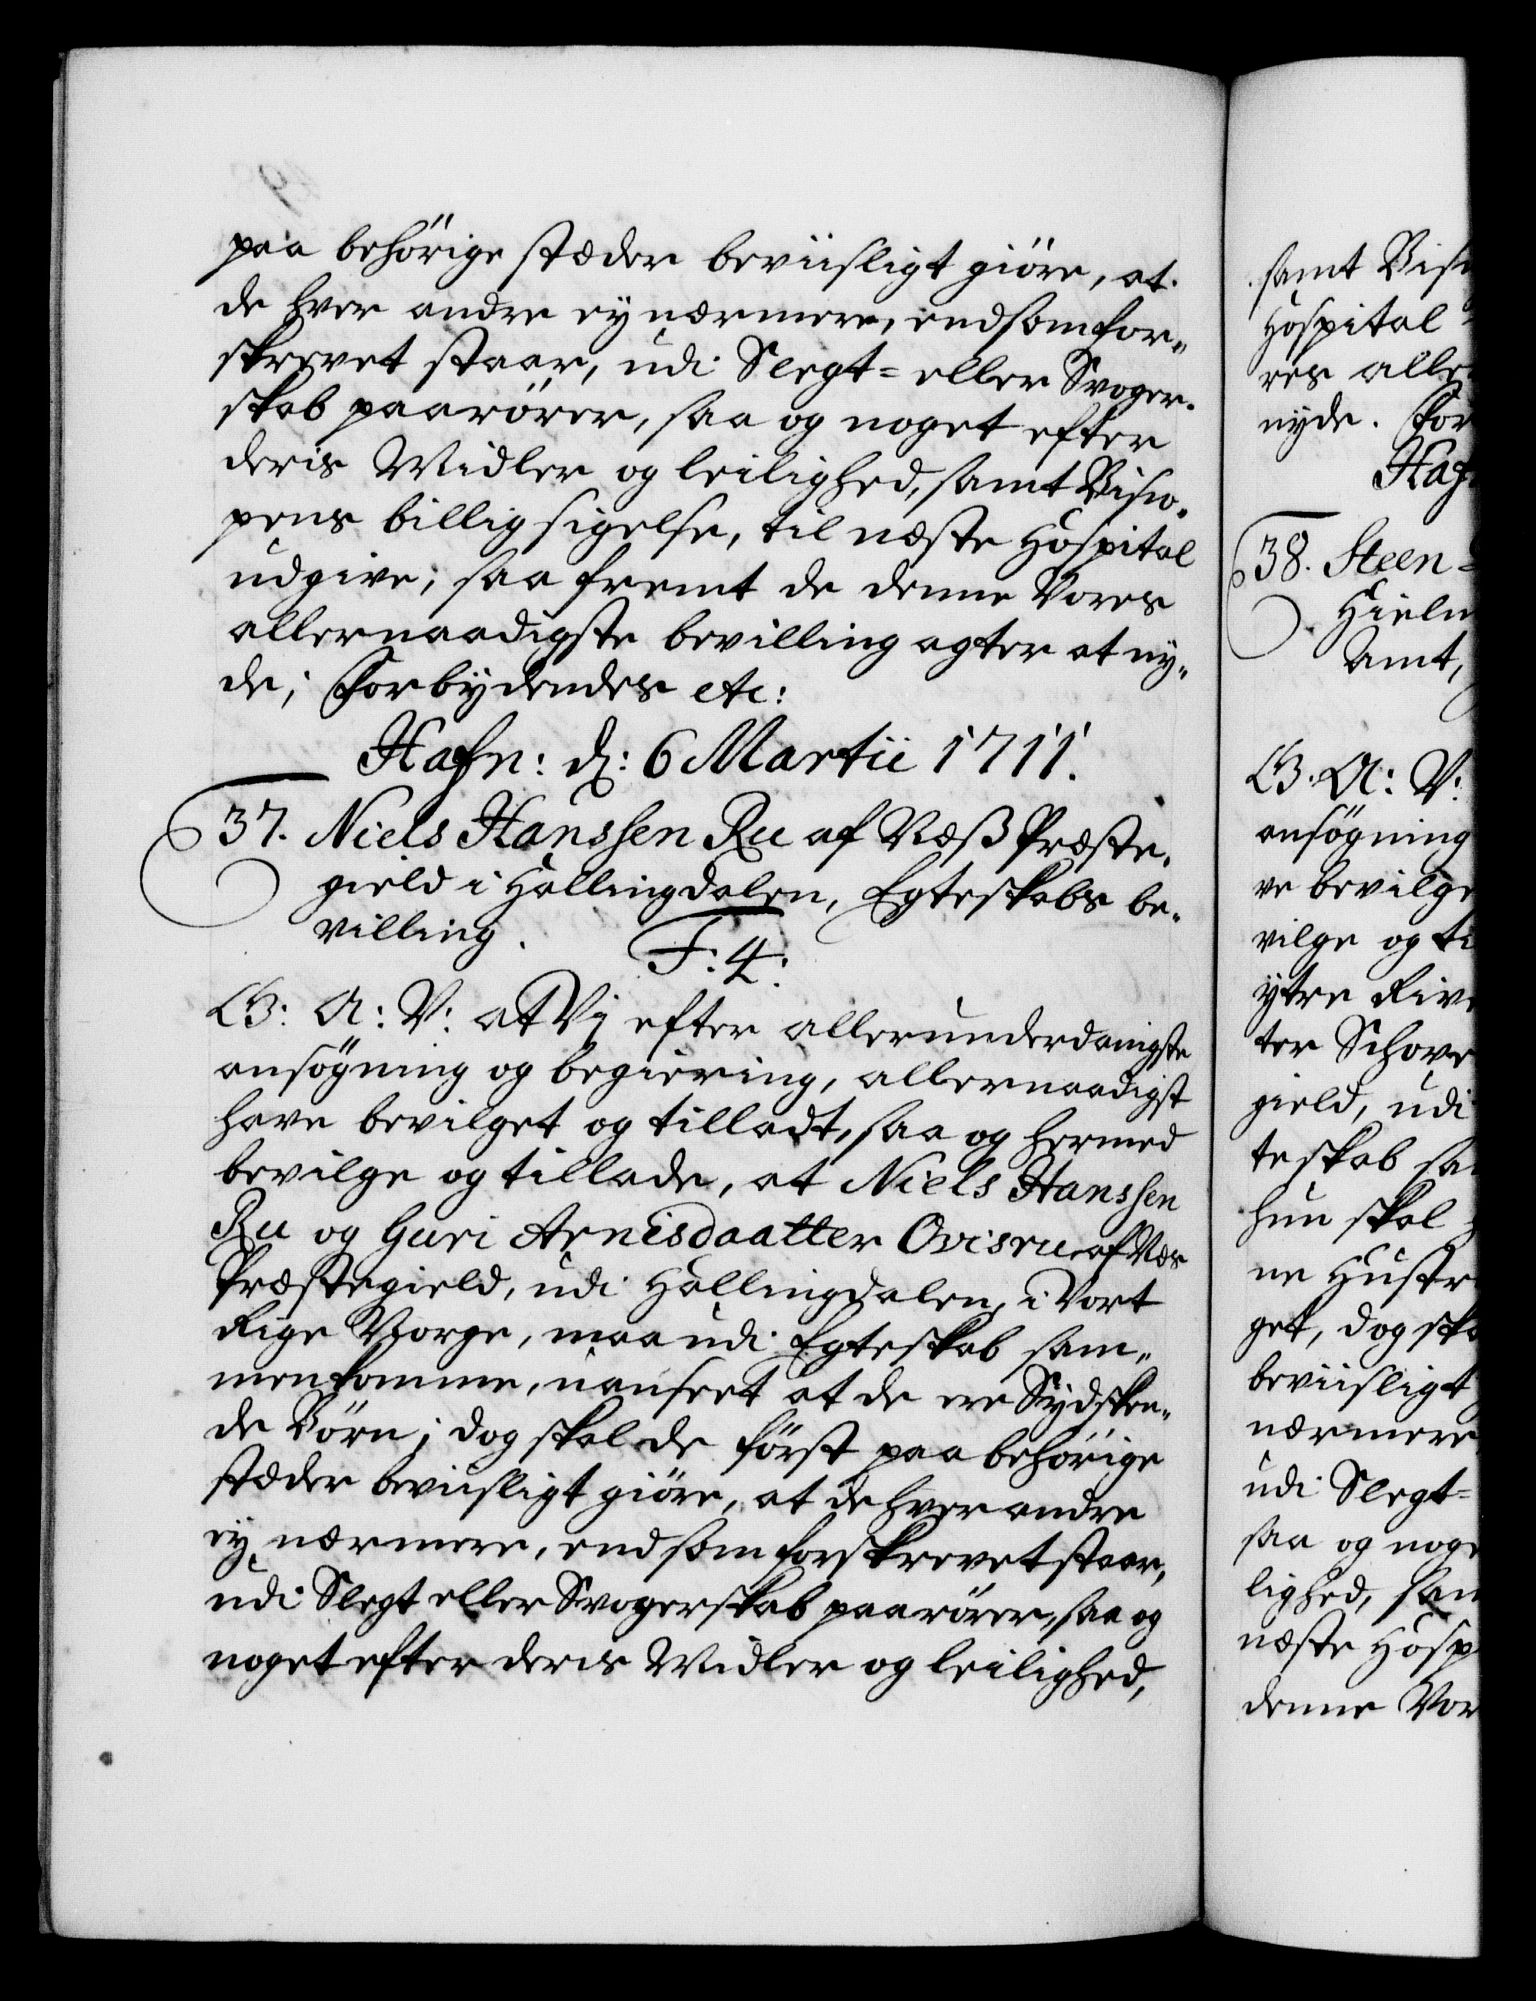 paa behörige stæder beviisligt giöre, at
de hver andre ey nærmere, end som for„
skrevet staar, udi Slegt= eller Svoger„
skab paarörer, saa og noget efter
deris Midler og leilighed, samt Bisco„
pens billig sigelse, til næste Hospital
udgive; saa fremt de denne Vores
allernaadigste bevilling agter at ny„
de; Forbydendes etc:
Hafn: d: 6 Martii 1711.
37. Niels Hanssen Ru af Næß Præste„
gield i Hallingdalen, Egteskabs be„
villing.
F: 4:
G: A: V: at Vi efter allerunderdanigste
ansögning og begiering, allernaadigst
have bevilget og tilladt, saa og hermed
bevilge og tillade, at Niels Hanssen
Ru og Guri Arnesdaatter Ovisru af Næs
Præstegield, udi Hallingdalen, i Vort
Rige Norge, maa udi Egteskab sam„
menkomme, uanseet at de ere Sydsken„
de Börn; dog skal de först paa behörige
stæder beviisligt giöre, at de hver andre
ey nærmere, end som forskrevet staar,
udi Slegt eller Svogerskab paarörer, saa og
noget efter deris Midler og leilighed,
samt Bis
Hospital
res aller
nyde. For
Haf
38. Steen
Hieln
Amt,
G: A: V:
ansögning
ve bevilge
vilge og ti
ytre Rive
ter Schove
gield, udi
teskab sa
hun skal
ne Hustr
get, dog ska
beviisligt
nærmere
udi Slegt=
saa og noge
lighed, sam
næste Hosp
denne Vor